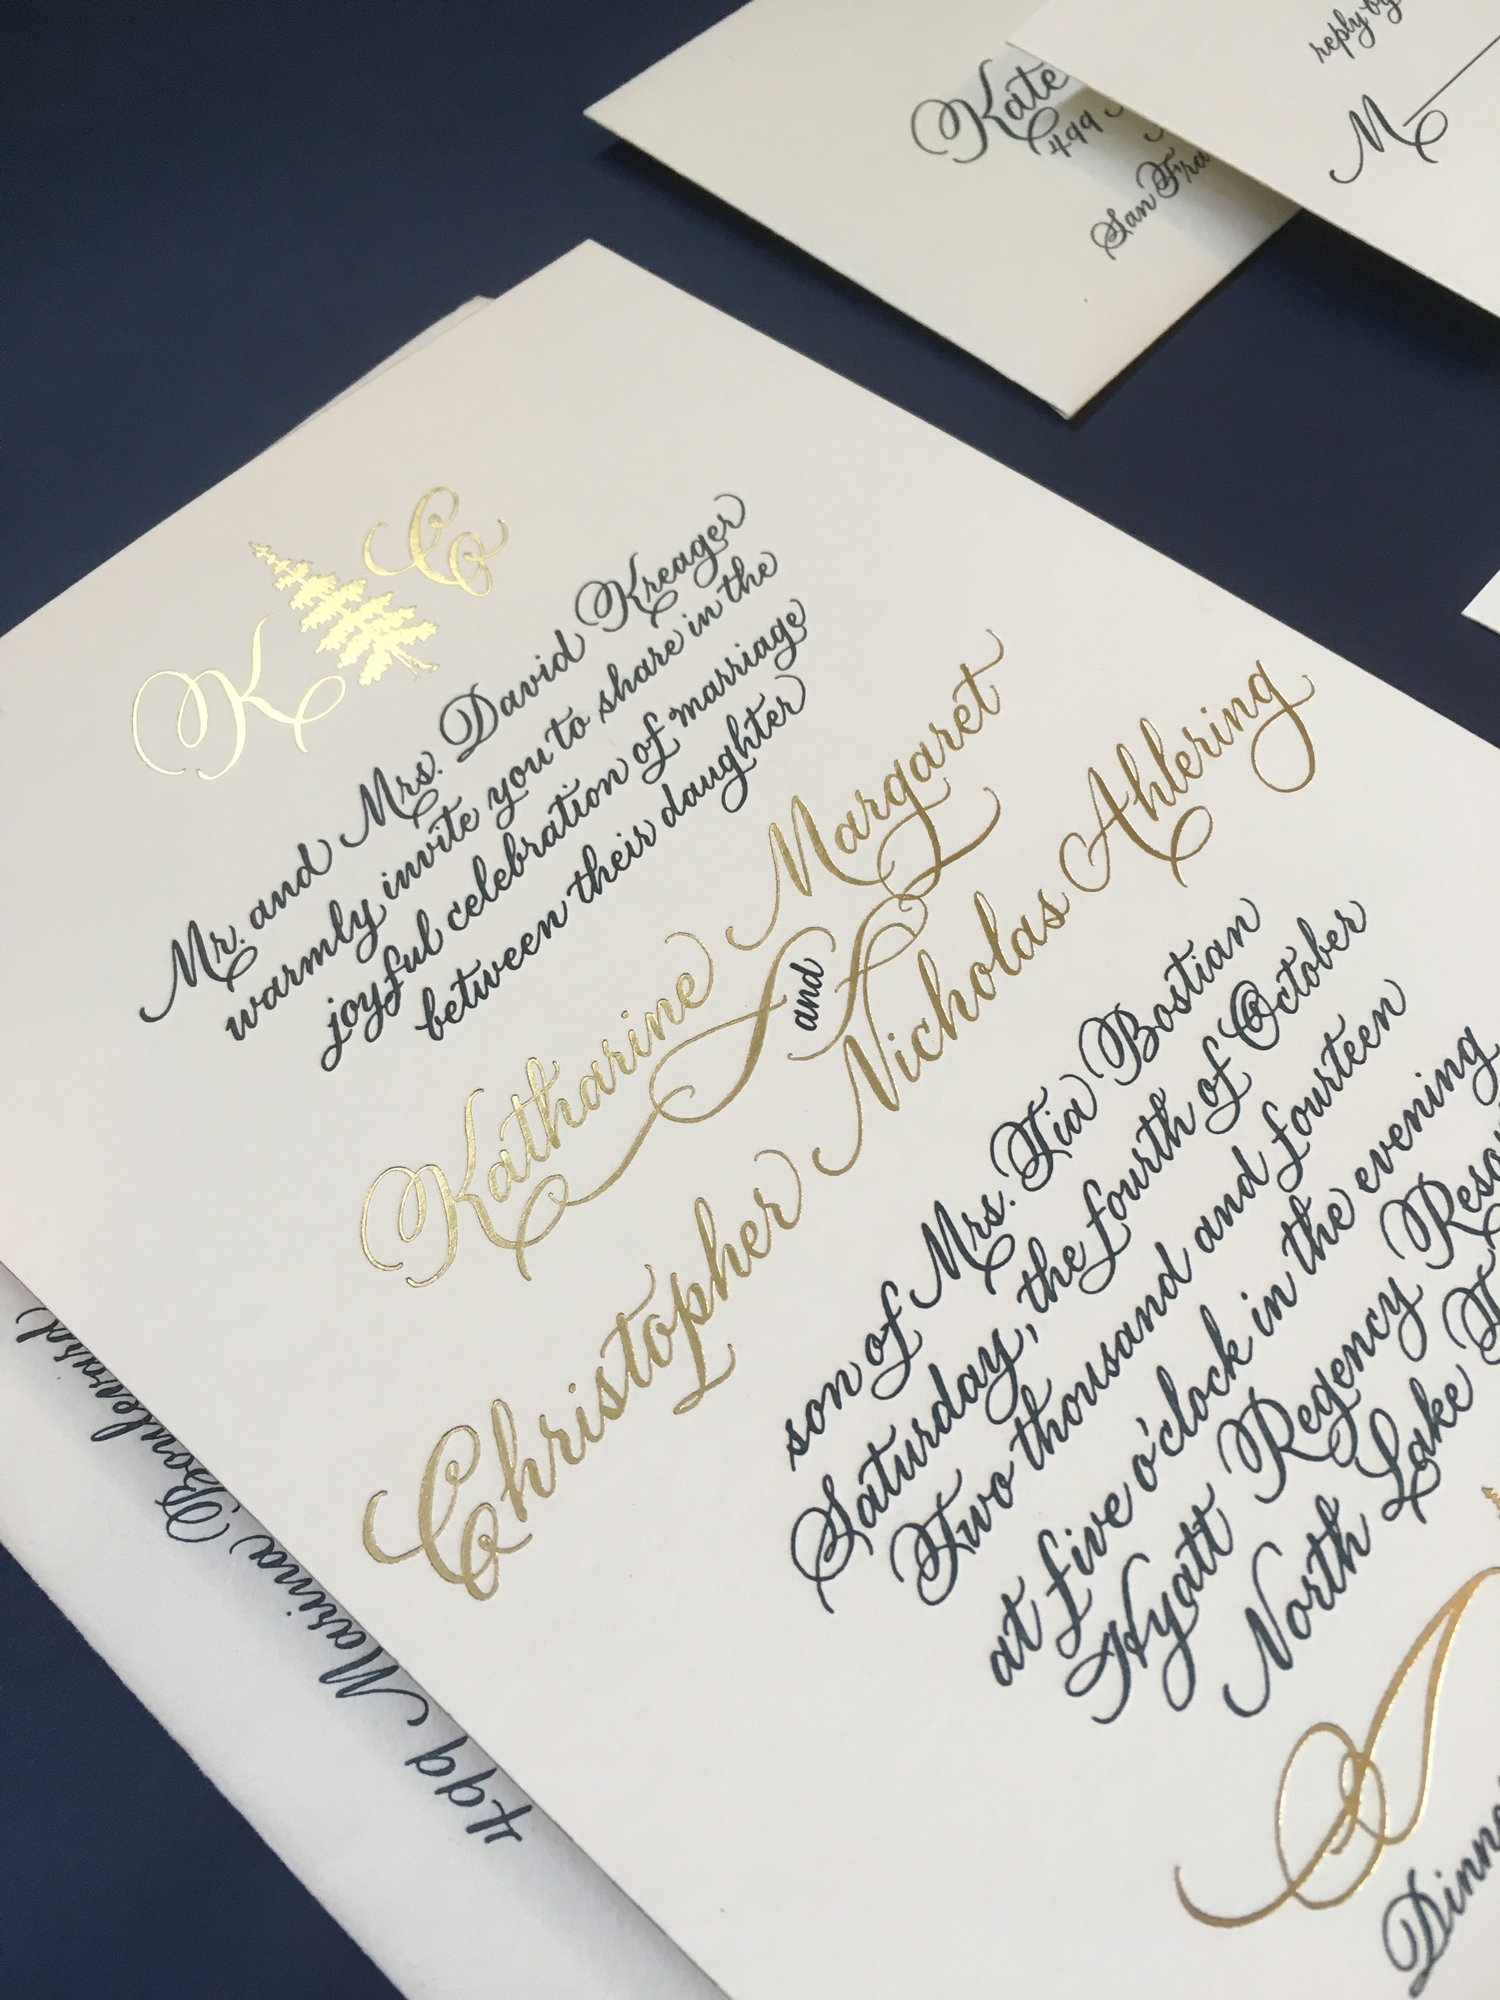 reply by
M
Kate
499
San Fra
K C
Mr. and Mrs. David Kreager
warmly invite you to share in the
joyful celebration of marriage
between their daughter
Katharine Margaret
and
Christopher Nicholas Ahlering
son of Mrs. Tia Bostian
Saturday, the fourth of October
Two thousand and fourteen
at five o'clock in the evening
Hyatt Regency Reso
North Lake T
Dinn
499 Marina Boulevard